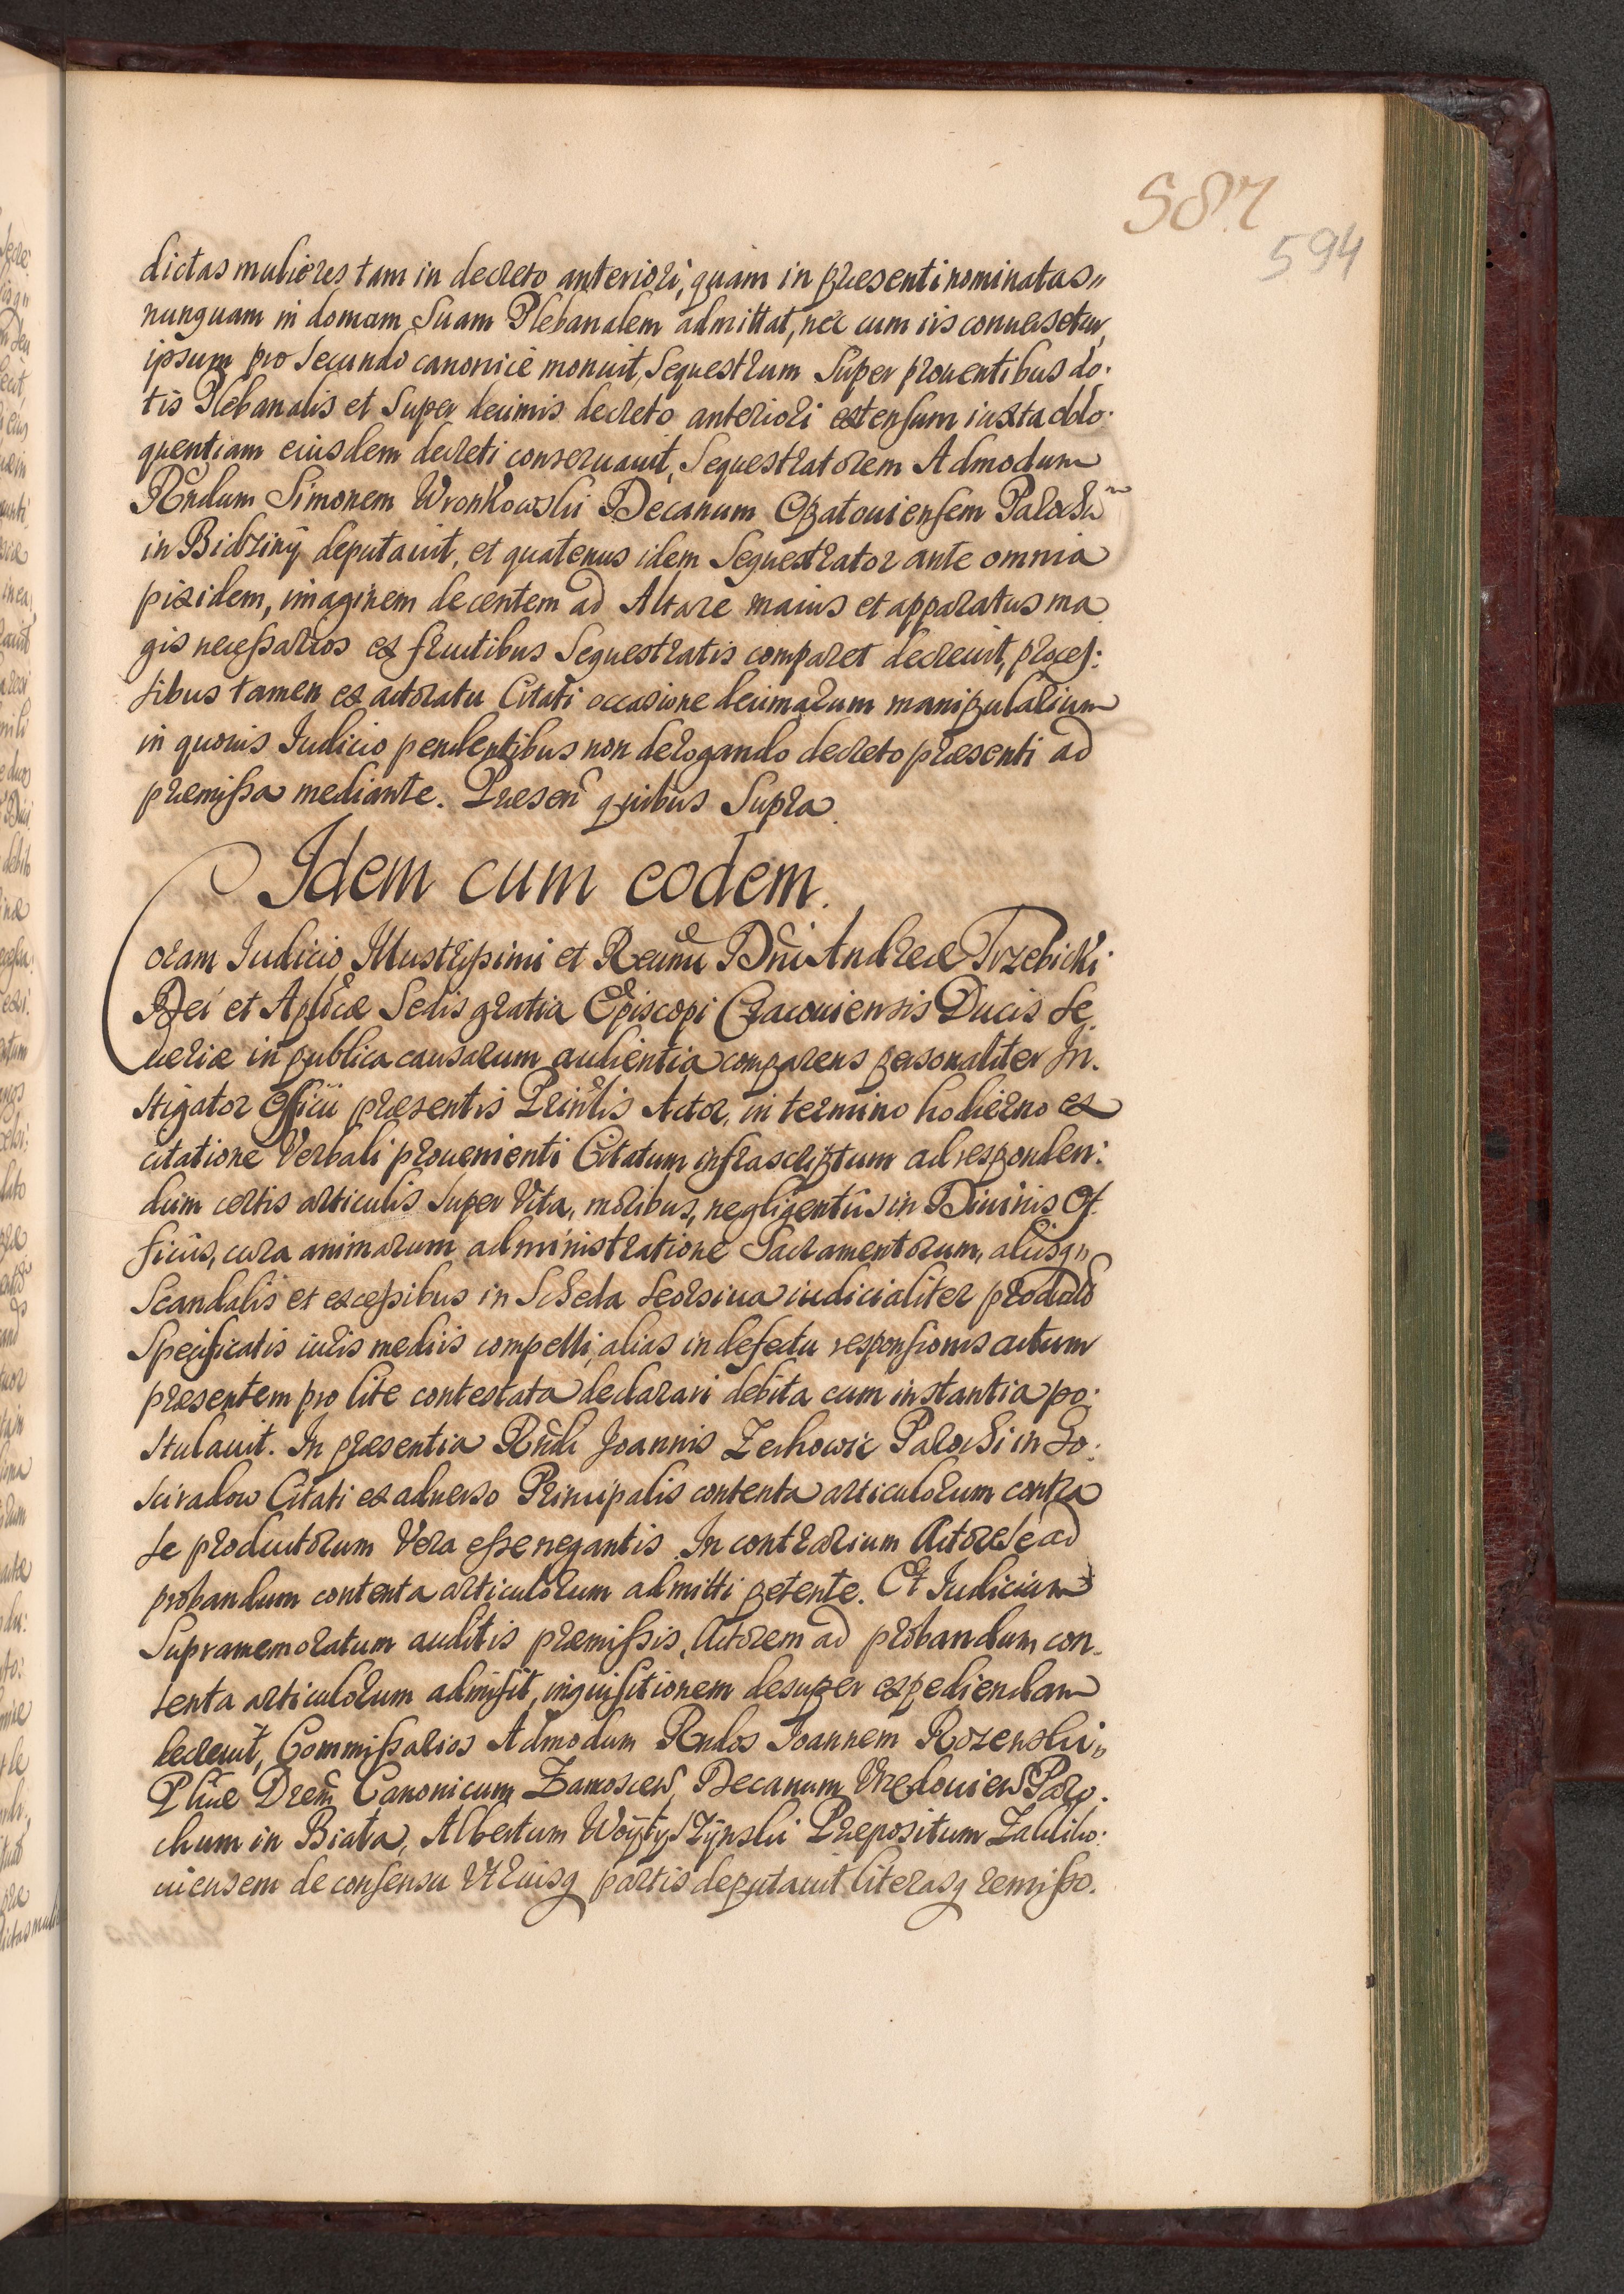 587
594
dictas mulieres tam in decreto anteriori, quam in præsenti nominatas„
nunquam in domum Suam Plebanalem admittat, nec cum iis conuersetur,
ipsum pro Secundo canonicè monuit, Sequestrum Super prouentibus do:
tis Plebanalis et Super decimis decreto anteriori extensum iuxta oblo:
quentiam eiusdem decreti conseruauit, Sequestratorem Admodum
Rńdum Simonem Wronkowski Decanum Opatouiensem Parochũ
in Bidziny deputauit, et quatenus idem Sequestrator ante omnia
pixidem, imaginem decentem ad Altare maius et apparatus ma
gis necessarios ex fructibus Sequestratis comparet decreuit, proces:
sibus tamen ex actoratu Citati occasione decimarum manipularium
in quouis Iudicio pendentibus non derogando decreto præsenti ad
præmissa mediante. Præseñ quibus Supra.
Idem cum eodem.
Coram Iudicio Illustrissimi et Reũmi Dñi Andreæ Trzebicki
Dei et Aplicæ Sedis gratia Episcopi Cracouiensis Ducis Se
ueriæ in publica causarum audientia comparens personaliter In.
stigator Officii præsentis Prinlis Actor, in termino hodierno ex
citatione Verbali prouenienti Citatum infrascriptum ad responden:
dum certis articulis Super Vita, moribus, negligentiis in Diuinis Of
ficiis, cura animarum administratione Sacramentorum, aliisq„
Scandalis et excessibus in Scheda Seorsiua iudicialiter producta
Specificatis iuris mediis compelli, alias in defectu responsionis actum
præsentem pro lite contestata declarari debita cum instantia po:
stulauit. In præsentia Rńdi Joannis Zechowic Parochi in Go:
scieradow Citati ex aduerso Principalis contenta articulorum contra
se productorum Vera esse negantis. In contrarium Actore Se ad
probandum contenta articulorum admitti petente. Et Iudicium
Supramemoratum auditis præmissis, Actorem ad probandum con.
tenta articulorum admisit, inquisitionem desuper expediendam
decreuit, Commissarios Admodum Rndos Ioannem Rozenski„
Canonicum Zamosceń Decanum Vrzedouień Paro.
chum in Biała, Albertum Præpositum Zakliko:
uiensem de consensu Vtriusq partis deputauit literasq remisso.